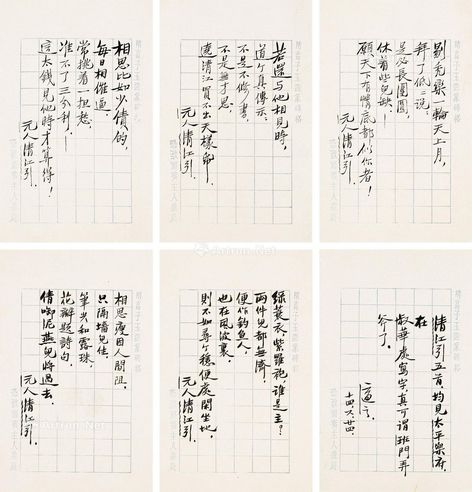 剔禿圞一輪天上月，
拜了低低說：
是必長團圓，
休着些兒缺，
願天下有情底都似你者！
元人清江引．
若還與他相見時，
道个真傳示：
不是不修書，
不是無才思，
遶清江買不出天樣紙！
元人清江引．
相思比如少債的，
每日相催逼，
常挑着一担愁，
准不了三分利，
這本錢見他時才算得！
元人清江引．
清江引五首均見太平樂府．
在
叔華處寫字真可謂班門弄
斧了．
適之．
十四，六，廿四．
綠蓑衣紫羅袍誰是主？
兩件兒都無濟，
便作釣魚人，
也在風波裏，
則不如尋个穩便處閒坐地．
元人清江引．
相思瘦因人間阻，
只隔墻兒住，
筆尖和露珠，
花瓣題詩句，
倩啣泥燕兒將過去．
元人清江引．
Artron.Net